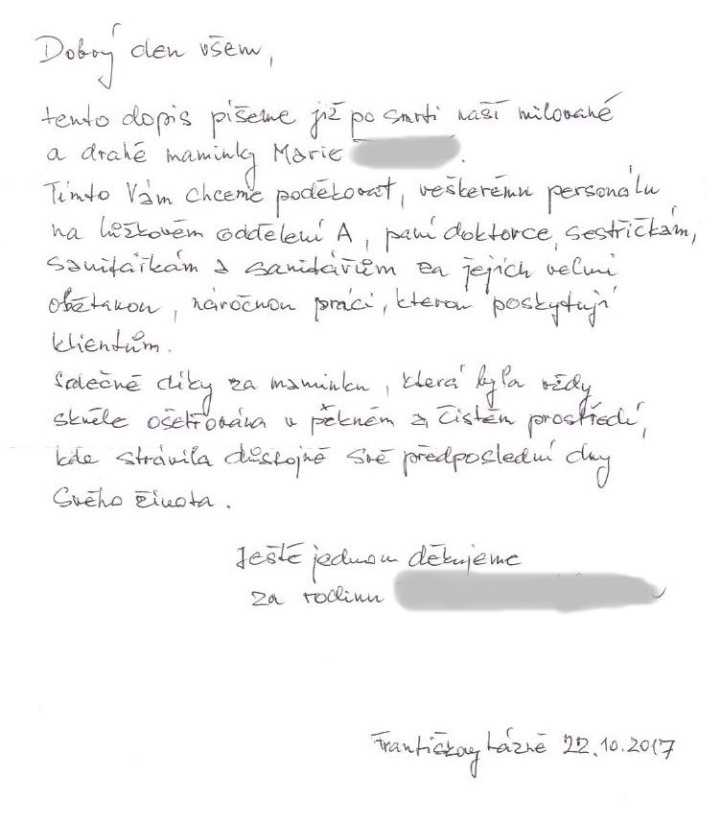 Dobrý den všem,
tento dopis píšeme již po smrti naší milované
a drahé maminky Marie .
Tímto Vám chceme poděkovat, veškerému personálu
na lůžkovém oddělení A, paní doktorce, sestřičkám,
sanitářkám a sanitářům za jejich velmi
obětavou, náročnou práci, kterou poskytují
klientům.
Srdečné díky za maminku, která byla vždy
skvěle ošetřována v pěkném a čistém prostředí,
kde strávila důstojně své předposlední dny
svého života.
Ještě jednou děkujeme
za rodinu
Františkovy Lázně 22.10.2017